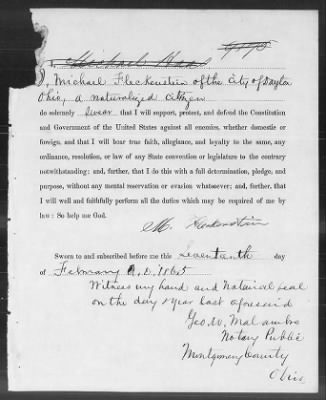 I, Michael Fleckenstein of the City of Dayton
Ohio, a naturalized citizen
do solemnly swear that I will support, protect, and defend the Constitution
and Government of the United States against all enemies, whether domestic or
foreign, and that I will bear true faith, allegiance, and loyalty to the same, any
ordinance, resolution, or law of any State convention or legislature to the contrary
notwithstanding; and, further, that I do this with a full determination, pledge, and
purpose, without any mental reservation or evasion whatsoever; and, further, that
I will well and faithfully perform all the duties which may be required of me by
law: So help me God.
M. Fleckenstein
Sworn to and subscribed before me this Seventeenth day
of February A.D. 1865
Witness my hand and Notarial seal
on the day & year last aforesaid
Geo. W.
Notary Public
Montgomery County
Ohio